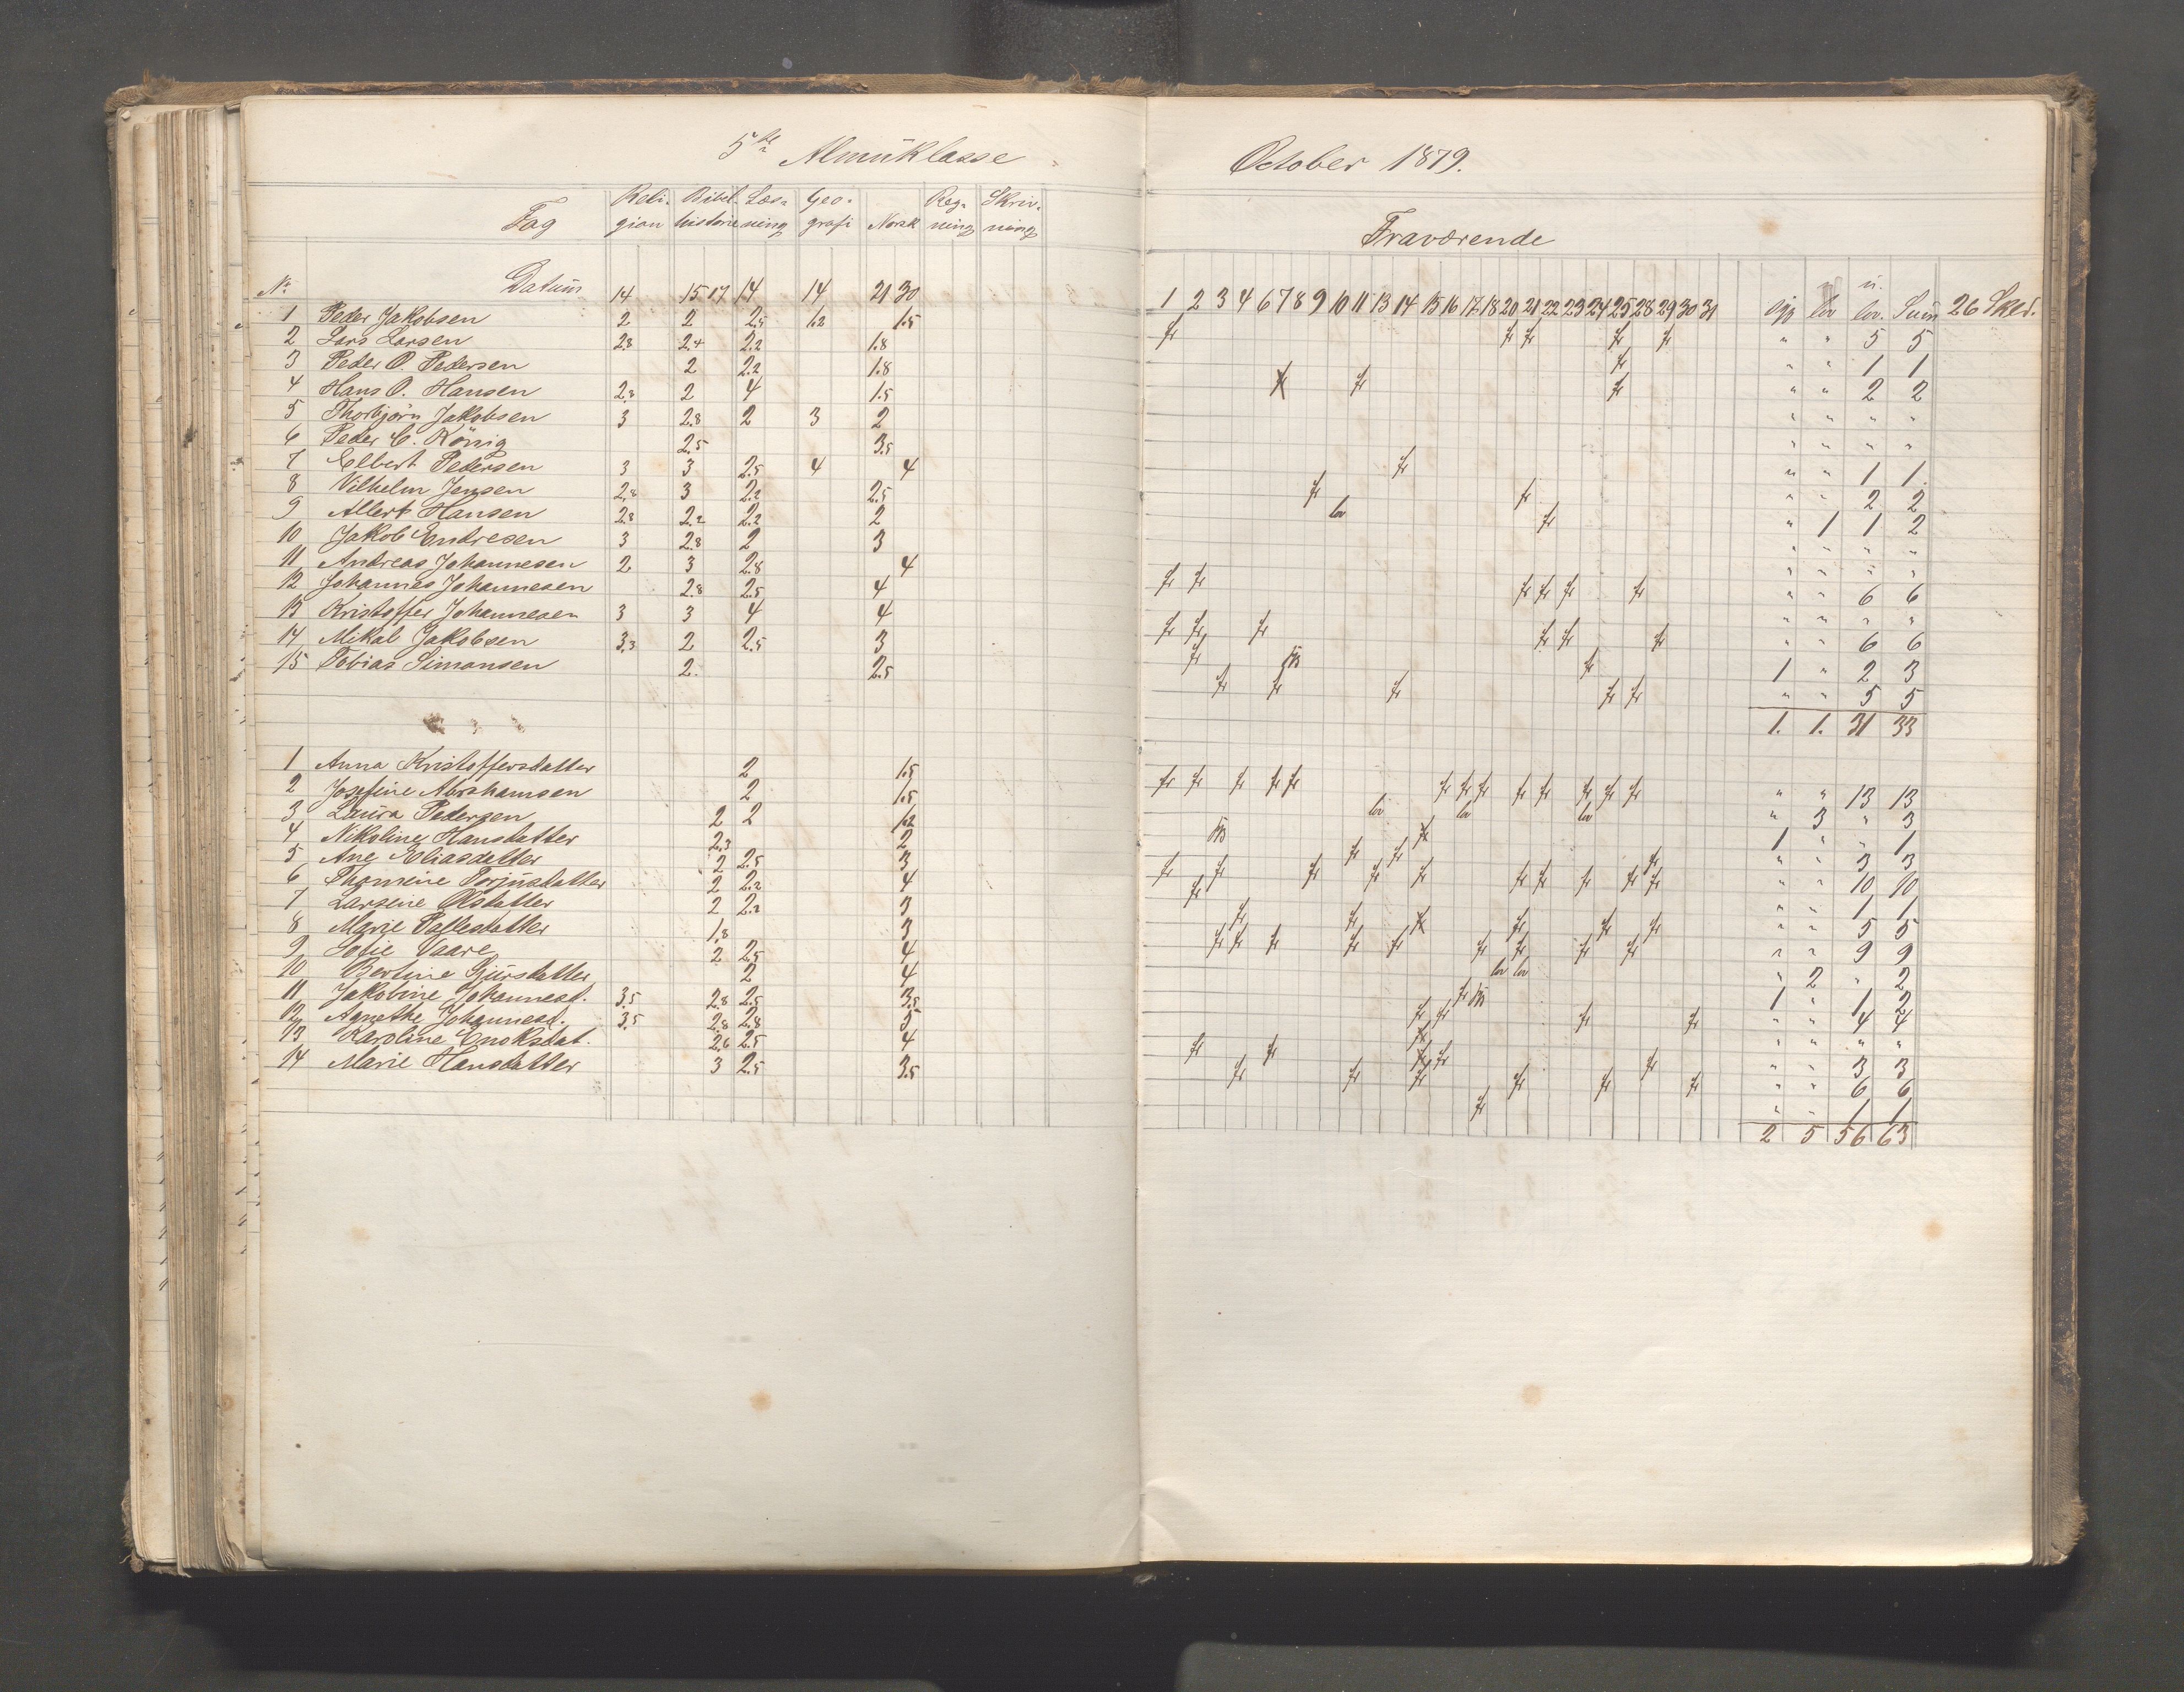 5te Almüklasse
Fag Reli- gion Bibel- historie Læs- ning Geo- grafi Norsk Reg- ning Skriv- ning
No Datum 14 15 17 14 14 21 30
1 Peder Jakobsen 2 2 2.5 1.2 1.5
2 Lars Larsen 2.8 2.4 2.2 1.8
3 Peder O. Pedersen 2 2.2 1.8
4 Hans O. Hansen 2.2 2 4 1.5
5 Thorbjörn Jakobsen 3 2.8 2 3 2
6 Peder C. König 2.5 3.5
7 Elbert Pedersen 3 3 2.5 4 4
8 Vilhelm Jensen 2.8 3 2.2 2.5
9 Allert Hansen 2.8 2.2 2.2 2
10 Jakob Endresen 3 2.8 2 3
11 Andreas Johannesen 2 3 2.8 4
12 Johannes Johannesen 2.8 2.5 4
13 Kristoffer Johannesen 3 3 4 4
14 Mikal Jakobsen 3.3 2 2.5 3
15 Tobias Simonsen 2. 2.5
1 Anna Kristoffersdatter 2 1.5
2 Josefine Abrahamsen 2 1.5
3 Laura Pedersen 2 2 1.2
4 Nikoline Hansdatter 2.3 2
5 Ane Eliasdatter 2 2.5 3
6 Thomine Torjusdatter 2 2.2 4
7 Larsene Olsdatter 2 2.2 3
8 Marie Pallesdatter 1.8 3
9 Sofie Vaare 2 2.5 4
10 Bertine Sjursdatter 2 4
11 Jakobine Johannesd. 3.5 2.8 2.5 3.5
12 Agnethe Johannesd. 3.5 2.8 2.8 5
13 Karoline Enoksdat. 2.6 2.5 4
14 Marie Hansdatter 3 2.5 3.5
October 1879.
Fraværende
1 2 3 4 6 7 8 9 10 11 13 14 15 16 17 18 20 21 22 23 24 25 28 29 30 31 syg lov u. lov. Sum 26 Sked.
fr fr fr fr fr " " 5 5
fr " " 1 1
fr fr fr " " 2 2
" " " "
" " " "
fr " " 1 1
fr fr " " 2 2
lov fr " 1 1 2
" " " "
" " " "
fr fr fr fr fr fr " " 6 6
" " " "
fr fr fr fr fr fr " " 6 6
fr fr 1 " 2 3
fr fr fr fr fr " " 5 5
1. 1. 31 33
fr fr fr fr fr fr fr fr fr fr fr fr fr " " 13 13
lov lov lov " 3 " 3
fr 1 " " 1
fr fr fr " " 3 3
fr fr fr fr fr fr fr fr fr fr " " 10 10
fr " " 1 1
fr fr fr fr fr fr " " 5 5
fr fr fr fr fr fr fr fr fr " " 9 9
lov lov " 2 " 2
fr 1 " 1 2
fr fr fr fr " " 4 4
fr " " " "
fr fr fr fr fr " " 3 3
fr fr fr fr fr fr " " 6 6
fr " " 1 1
2 5 56 63